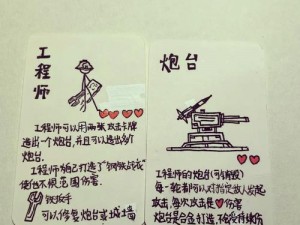 工程师
工程师可以用两张攻击卡牌
造出一个炮台,并且可以造出多个
炮台.
工程师为自己打造了“钢铁战衣”
使他不授范围伤害.
铁扳手
可以修复炮台或城墙
炮台
工程师的炮台(可离线)
每一轮都可以对指定敌人发起
攻击,每次攻击是
伤害
炮台是合金打造,不会受持续伤